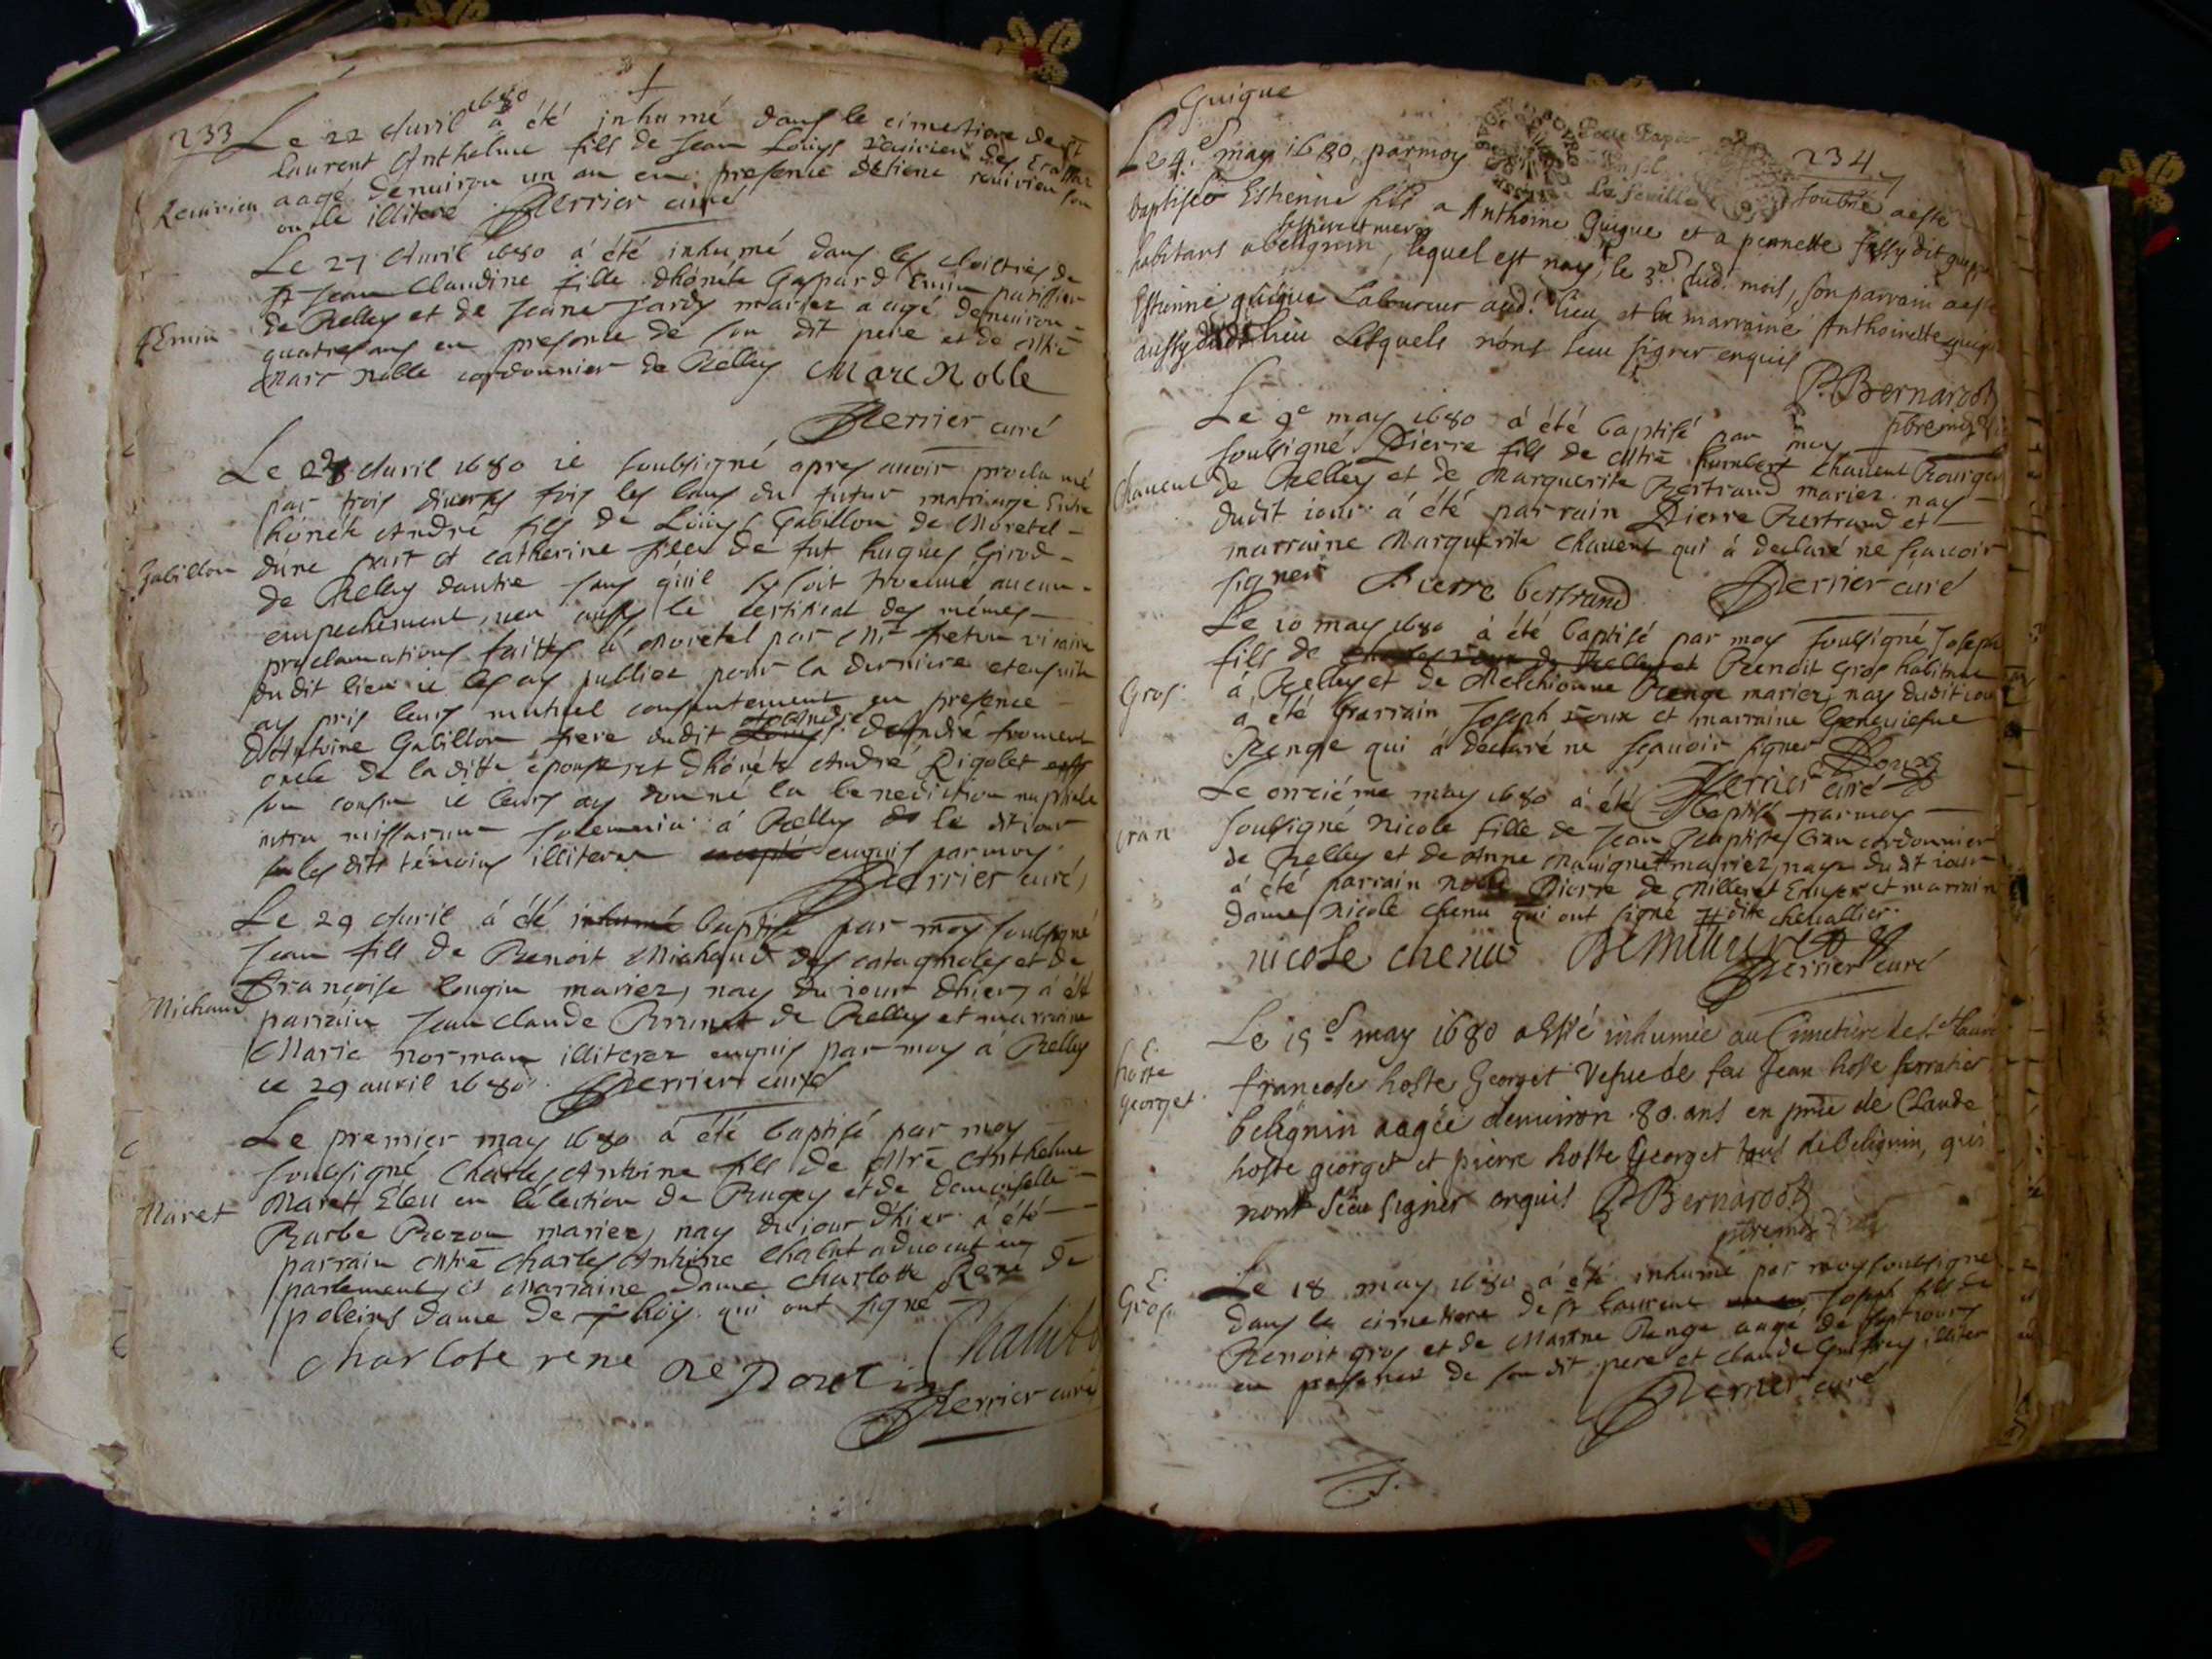 233
Le 22 Auril 1680 à été inhumé dans le cimetiere de st
laurent Anthelme fils de Jean Loüys
Reuirieu aagé denuiron un an en presence detiene reuirieu son
oncle illiteré Perrier curé
Le 27 Auril 1680 á été inhumé dans les cloistres de
st Jean Claudine fille dhónéte Gaspard Emin patissier
f Emin de Belley et de Jeane Jardy mariez aagé denuiron
quatre ans en presence de son dit pere et de Mtre
Marc Nolle cordonnier de Belley Marc Nolle
Berrier curé
Le 28 Auril 1680 ie soubsigné apres auoir proclamé
par trois diuerses fois les bans du futur mariage Entre
hónéte André fils de Loüys Gabillon de Moretel
Gabillon dúne part et catherine fille de fut hugues Girod
de Belley dautre sans quil se soit trouué aucun
empechement, ueu aussy le certificat des mémes
proclamations faittes à Moretel par Mr fretin vicaire
du dit lieu ie les ay publiez pour la derniere et ensuite
ay pris leurs mutuel consentement en presence
dAntoine Gabillon frere dudit André froment
oncle de la ditte épouse et dhónéte André Rigolet
son cousin ie leurs ay donné la benediction nuptiale
intra missarum solemnia à Belley le dit iour
les dits témoins illiterez enquis par moy
Berrier curé
Le 29 Auril á été inhumé baptisé par moy soubsigné
Jean fils de Benoit Michaud des catagnoles et de
françoise Cugin mariez, nay du iour dhier, à été
Michaud parrain Jean claude Brunet de Belley et marraine
Marie norman illiterez enquis par moy á Belley
ce 29 auril 1680 Berrier curé
Le premier may 1680 á été baptisé par moy
soubsigné Charles Antoine fils de Mtre Anthelme
Maret Maret Eleu en lélection de Bugey et de demoiselle
Barbe Bozon mariez, nay du iour dhier á été
parrain Mtre charles Antoine Chabut aduocat en
parlement, et Marraine dame charlotte René de
poleins dame de qui ont signé
charlote rene Chabut
Berrier curé
Guigue
234
Le 4e may 1680 par moy soubné aeste
baptiséo Estienne fils a Anthoine Guigue et a pernette
habitans abelignin, lequel est nay le 3e dud. mois, son parrain aeste
Estienne guigue Laboureur aud. lieu et la marraine Anthoinette guigue
aussy dud lieu Lesquels nónt sceu signer enquis
P. Bernardot
Le 9e may 1680 á été baptisé par moy
soubsigné Pierre fils de Mtre humbert chauent Bourgeois
Chauent de Belley et de Marguerite Bertrand mariez nay
dudit iour á été parrain Pierre Bertrand et
marraine Marguerite chauent qui á declaré ne sçauoir
signer Pierre bertrand Berrier curé
Le 10 may 1680 á été baptisé par moy soubsigné Joseph
fils de Benoit Gros habitant
Gros á Belley et de Melchionne Benge mariez, nay dudit iour
á été parrain Joseph roux et marraine Geneuiefue
Benge qui á declaré ne sçauoir signer Roux
Berrier curé
Le onziéme may 1680 á été baptisé par moy
soubsigné Nicole fille de Jean Baptiste Cran cordonnier
cran de Belley et de Anne Mauignet mariez, naye du dit iour
á été parrain noble Pierre de Milleret Ecuyer et marraine
dame Nicole chenu qui ont signé dite cheuallier
nicole chenu
Berrier curé
Le 15e may 1680 a esté inhumée au Cimetière de st Laurent
hoste georget francoise hoste Georget vefue de feu Jean hoste ferratier
belignin aagée denuiron 80. ans en pnce de Claude
hoste georget et pierre hoste Georget tous de Belignin, qui
nont sceu signer enquis P. Bernardot
Le 18 may 1680 á été inhumé par moy soubsigné
Gros dans le cimetiere de st Laurent Joseph fils de
Benoit gros et de Benge aagé de sept iours
en presence de son dit pere et claude illiter
Berrier curé